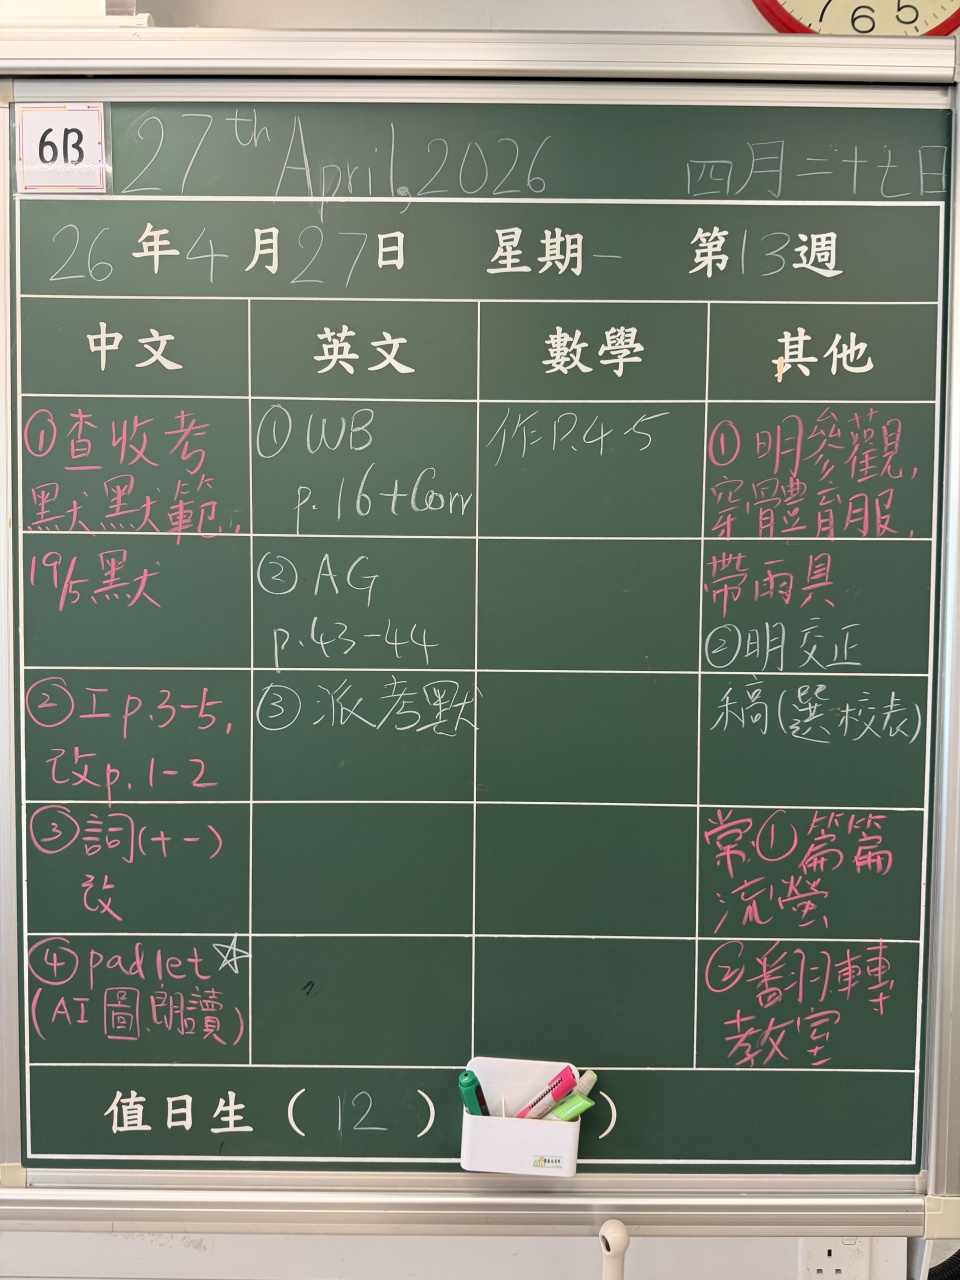 7 6 5
6B
27th April, 2026 四月二十七日
26年4月27日 星期一 第13週
中文 英文 數學 其他
①查收考
默默範,
19/5默
②工p.3-5,
改p.1-2
③詞(十一)
改
④padlet☆
(AI圖.朗讀)
①WB
p.16+Corr
②AG
p.43-44
③派考默
作P.4-5
①明參觀,
穿體育服,
帶雨具
②明交正
稿(選校表)
常①篇篇
流螢
②翻轉
教室
值日生(12) )